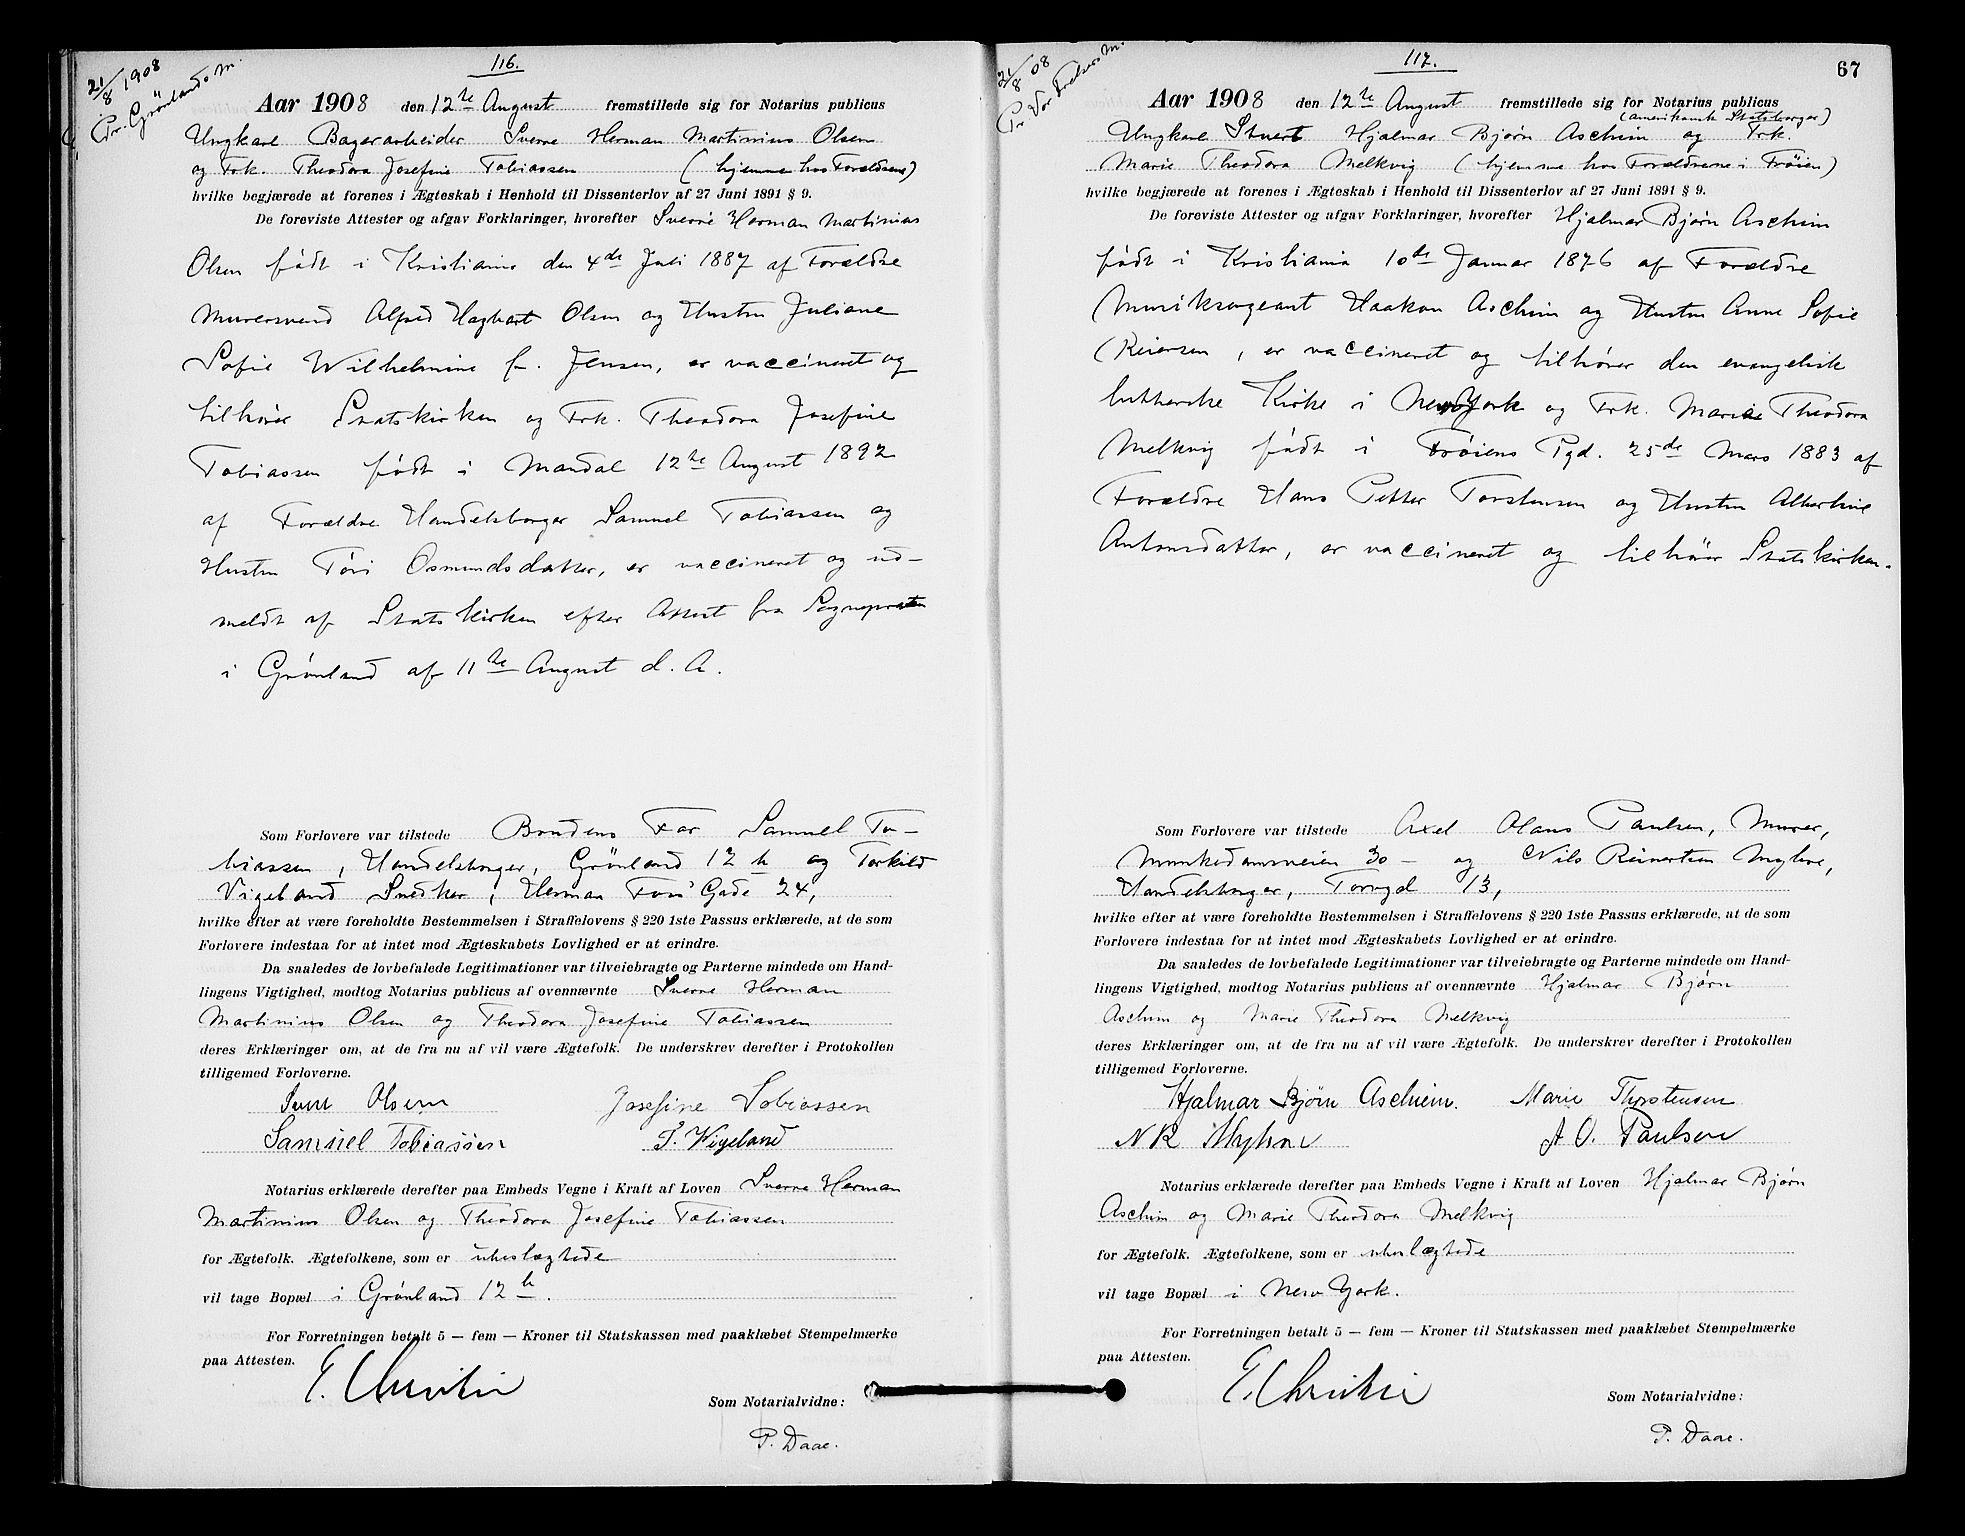 21/8 1908
Pr. Grönlands M.
116.
Aar 1908 den 12te August fremstillede sig for Notarius publicus
Ungkarl Bagerarbeider Sverre Herman Martinius Olsen
og Frk. Theodora Josefine Tobiassen (hjemme hos Forældrene)
hvilke begjærede at forenes i Ægteskab i Henhold til Dissenterlov af 27 Juni 1891 § 9.
De foreviste Attester og afgav Forklaringer, hvorefter Sverre Herman Martinius
Olsen født i Kristiania den 4de Juli 1887 af Forældre
Murersvend Alfred Hagbart Olsen og Hustru Juliane
Sofie Wilhelmine f. Jensen, er vaccineret og
tilhører Statskirken og Frk. Theodora Josefine
Tobiassen født i Mandal 12te August 1892
af Forældre Handelsborger Samuel Tobiassen og
Hustru Töri Osmundsdatter, er vaccineret og ud-
meldt af Statskirken efter Attest fra Sognepresten
i Grönland af 11te August d. A.
Som Forlovere var tilstede Brudens Far Samuel To-
biassen, Handelsborger, Grönland 12 b og Torkild
Vigeland Snedker, Herman Foss' Gade 24,
hvilke efter at være foreholdte Bestemmelsen i Straffelovens § 220 1ste Passus erklærede, at de som
Forlovere indestaa for at intet mod Ægteskabets Lovlighed er at erindre.
Da saaledes de lovbefalede Legitimationer var tilveiebragte og Parterne mindede om Hand-
lingens Vigtighed, modtog Notarius publicus af ovennævnte Sverre Herman
Martinius Olsen og Theodora Josefine Tobiassen
deres Erklæringer om, at de fra nu af vil være Ægtefolk. De underskrev derefter i Protokollen
tilligemed Forloverne.
Olsen Josefine Tobiassen
Samuel Tobiassen T. Wigeland
Notarius erklærede derefter paa Embeds Vegne i Kraft af Loven Sverre Herman
Martinius Olsen og Theodora Josefine Tobiassen
for Ægtefolk. Ægtefolkene, som er ubeslægtede
vil tage Bopæl i Grønland 12 b.
For Forretningen betalt 5 — fem — Kroner til Statskassen med paaklæbet Stempelmærke
paa Attesten.
E. Christie
Som Notarialvidne:
P. Daae.
21/8 08
Pr. Vor Frelsers M.
117.
67
Aar 1908 den 12te August fremstillede sig for Notarius publicus
(amerikansk Statsborger)
Ungkarl Stuert Hjalmar Bjørn Aschim og Frk.
Marie Theodora Melkvig (hjemme hos Forældrene i Frøien)
hvilke begjærede at forenes i Ægteskab i Henhold til Dissenterlov af 27 Juni 1891 § 9.
De foreviste Attester og afgav Forklaringer, hvorefter Hjalmar Bjørn Aschim
født i Kristiania 10de Januar 1876 af Forældre
Musiksergeant Haakon Aschim og Hustru Anne Sofie
Reiersen, er vaccineret og tilhører den evangelisk
lutherske Kirke i New York og Frk. Marie Theodora
Melkvig født i Frøiens Pgd. 25de Mars 1883 af
Forældre Hans Petter Torstensen og Hustru Albertine
Antonsdatter, er vaccineret og tilhører Statskirken.
Som Forlovere var tilstede Axel Olaus Paulsen, Murer,
Munkedamsveien 30 – og Nils Reinertsen Myhre,
Handelsborger, Torvgd 13,
hvilke efter at være foreholdte Bestemmelsen i Straffelovens § 220 1ste Passus erklærede, at de som
Forlovere indestaa for at intet mod Ægteskabets Lovlighed er at erindre.
Da saaledes de lovbefalede Legitimationer var tilveiebragte og Parterne mindede om Hand-
lingens Vigtighed, modtog Notarius publicus af ovennævnte Hjalmar Bjørn
Aschim og Marie Theodora Melkvig
deres Erklæringer om, at de fra nu af vil være Ægtefolk. De underskrev derefter i Protokollen
tilligemed Forloverne.
Hjalmar Bjørn Aschiem. Marie Thorstensen
N R Myhre A. O. Paulsen
Notarius erklærede derefter paa Embeds Vegne i Kraft af Loven Hjalmar Bjørn
Aschim og Marie Theodora Melkvig
for Ægtefolk. Ægtefolkene, som er ubeslægtede
vil tage Bopæl i New York.
For Forretningen betalt 5 — fem — Kroner til Statskassen med paaklæbet Stempelmærke
paa Attesten.
E. Christie
Som Notarialvidne:
P. Daae.